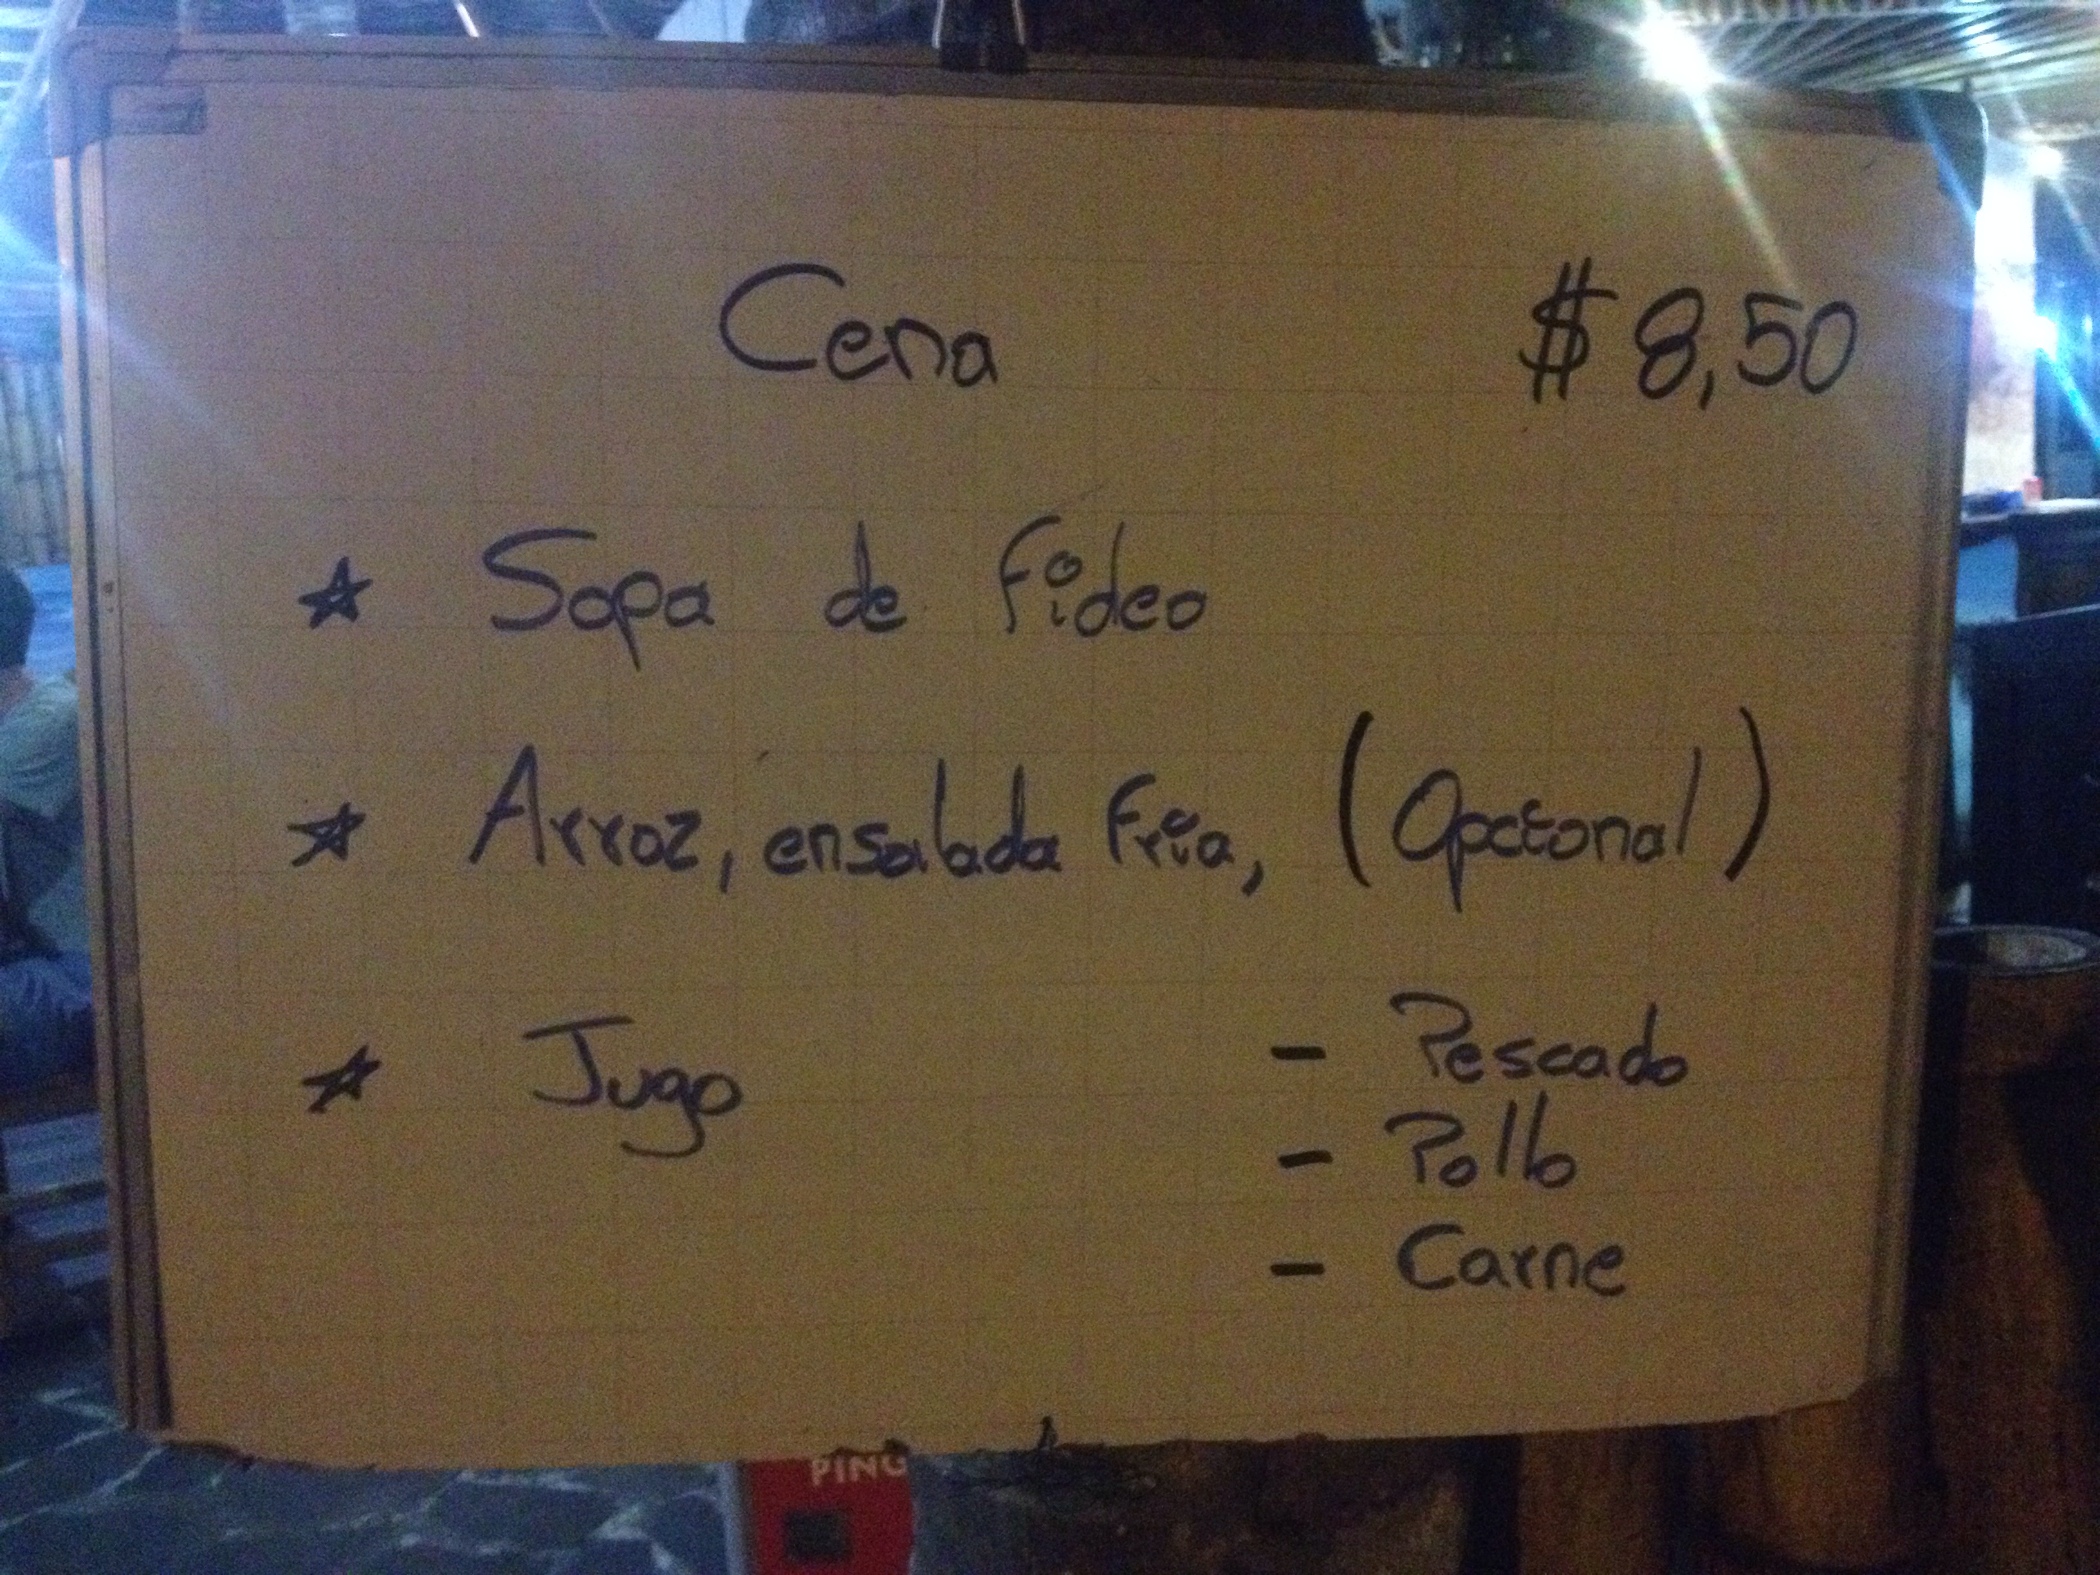 Cena $ 8,50
☆ Sopa de fideo
☆ Arroz, ensalada fria, (Opctonal)
☆ Jugo
- Pescado
- Pollo
- Carne
PING